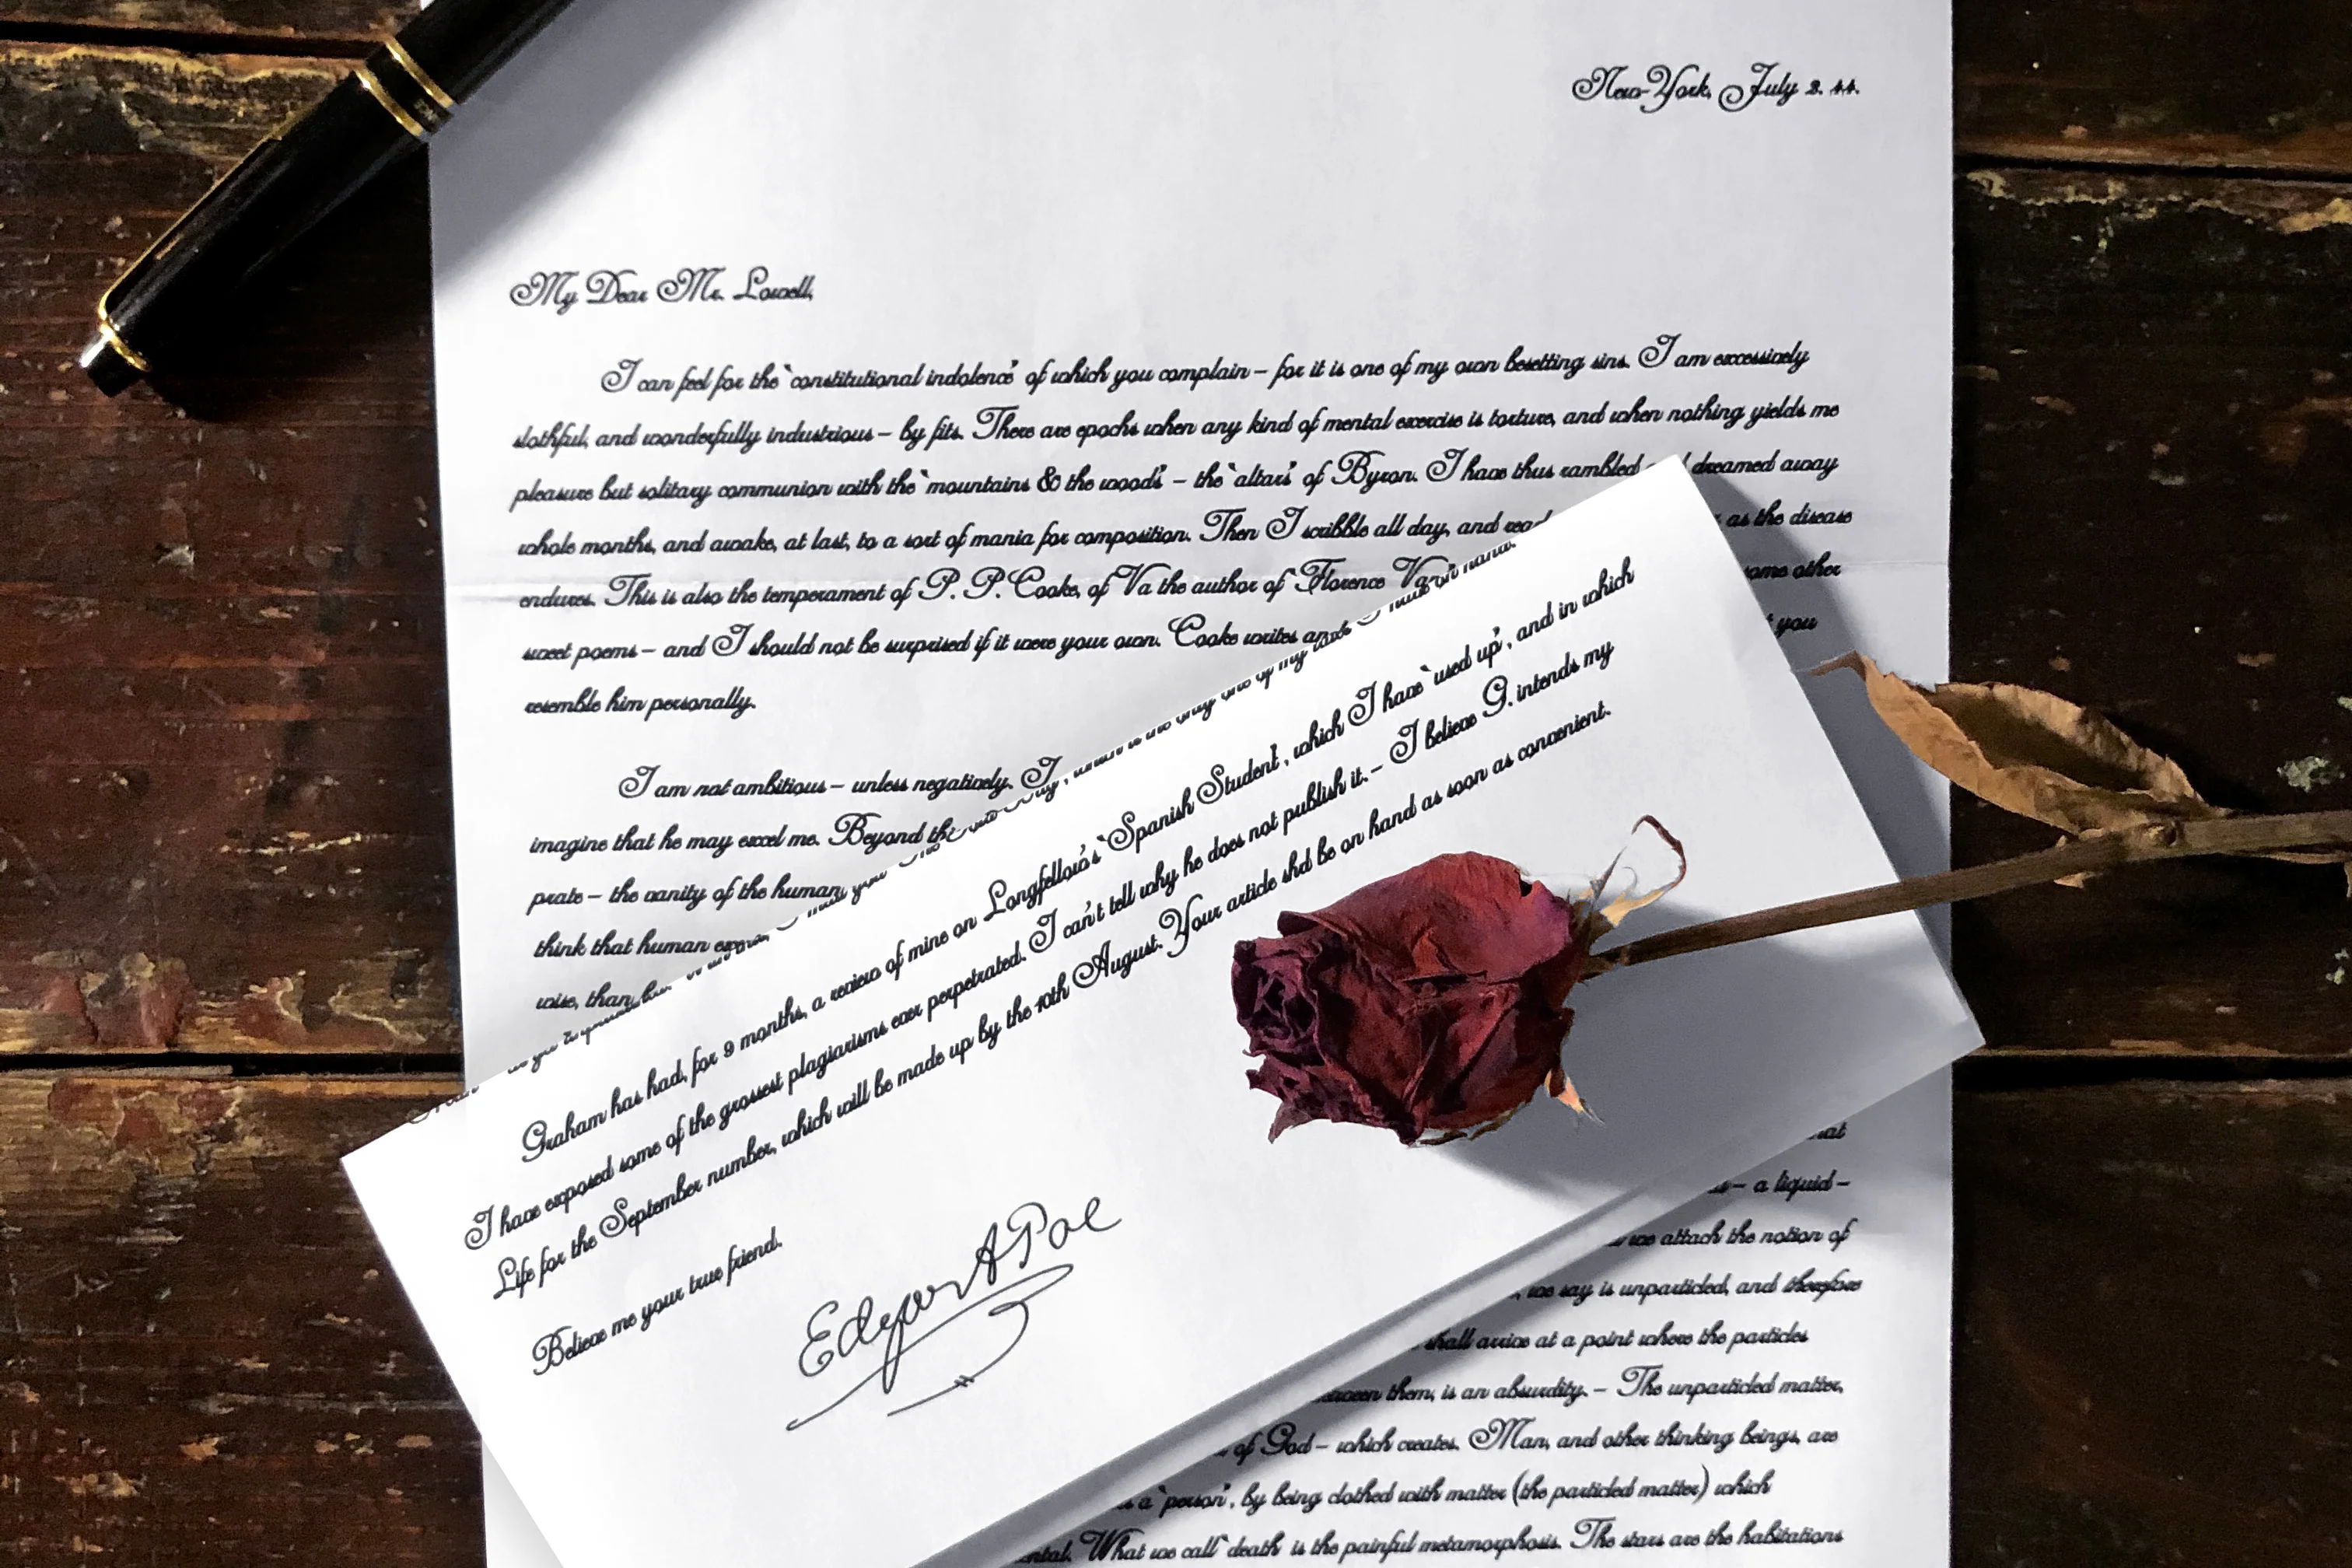 New-York, July 2. 44.
My Dear Mr. Lowell,
I can feel for the `constitutional indolence' of which you complain – for it is one of my own besetting sins. I am excessively
slothful, and wonderfully industrious – by fits. There are epochs when any kind of mental exercise is torture, and when nothing yields me
pleasure but solitary communion with the `mountains & the woods' – the `altars' of Byron. I have thus rambled dreamed away
whole months, and awake, at last, to a sort of mania for composition. Then I scribble all day, and read as the disease
endures. This is also the temperament of P. P. Cooke, of Va the author of `Florence other
sweet poems – and I should not be surprised if it were your own. Cooke writes you
resemble him personally.
I am not ambitious – unless negatively. I
imagine that he may excel me. Beyond
prate – the vanity of the human
think that human
wise, than
Graham has had, for 9 months, a review of mine on Longfellow's `Spanish Student', which I have `used up', and in which
I have exposed some of the grossest plagiarisms ever perpetrated. I can't tell why he does not publish it. – I believe G. intends my
Life for the September number, which will be made up by the 10th August. Your article shd be on hand as soon as convenient.
Believe me your true friend.
Edgar A Poe
– a liquid –
we attach the notion of
we say is unparticled, and therefore
shall arrive at a point where the particles
them, is an absurdity. – The unparticled matter,
of God – which creates. Man, and other thinking beings, are
a `person', by being clothed with matter (the particled matter) which
What we call `death' is the painful metamorphosis. The stars are the habitations